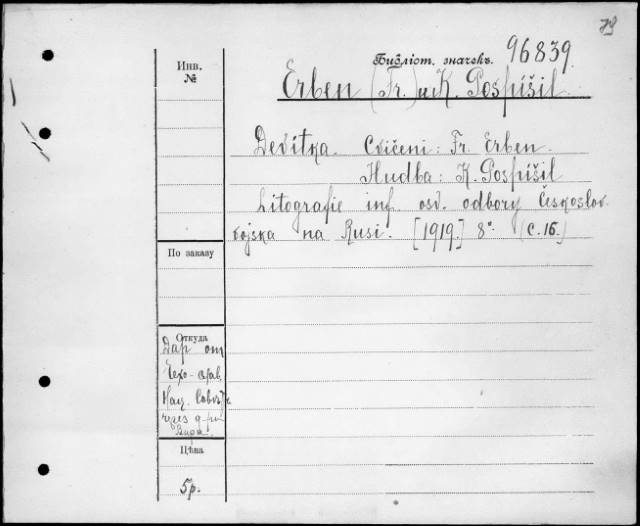 79
Библіот. значекъ. 96839.
Инв.
№
Erben (Fr.) и K. Pospíšil
Devítka. Cvičeni: Fr. Erben.
Hudba: K. Pospíšil
Litografie inf. osv. odbory Českoslov.
vojska na Rusi. [1919.] 8°. (с. 16.)
По заказу
Откуда
Дар от
Чехо-слав.
Нац. Совѣта
через д-ра
Цѣна
5р.